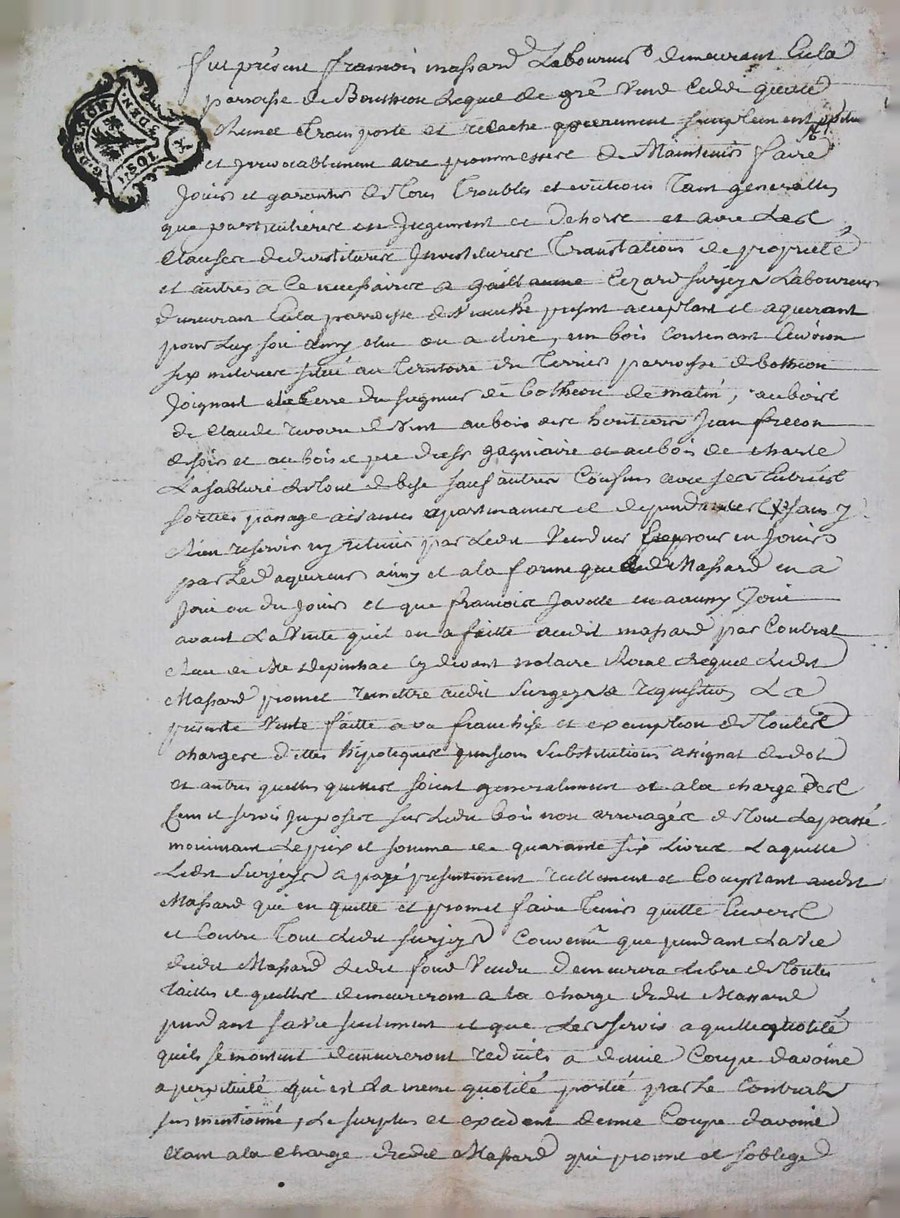 Fut présent francois massard Laboureur demeurant En la
parroisse de Boussieon Lequel de gré Vend Cedde quitte
Remet Transporte et relache purement simplement
et irrevocablement avec prommessere de Maintenir faire
Jouir et garentir de Tous Troubles et evictions Tant generalles
que particulierere en Jugement et dehors et avec Les
Clausere de devestiture Investiture Translations de propriété
et autres a ce necessairere a guillaume Surjeyx Laboureur
demeurant En la parroisse de present aceptant et aquerant
pour Luy son amy elu ou a elire, un bois Contenant Environ
six situé au Territoire du Terrier parroisse de bothéon
Joignant la Terre du seigneur de bothéon de matin, au bois
de Claude de Vent au bois des heritiers Jean
de soir et au bois et pré gagniaire et au bois de
La sablure de bise sauf autres Confins avec ses Entrées
sorties passage aisances apartenances et dependances sans y
Rien reserver ny retenir par Ledit Vendeur pour en Jouir
par Led aquereur ainsy et a la forme que Led Massard en a
Joui ou du Jouir et que francois Javelle en a aussy Joui
avant La Vente quil en a faitte audit massard par Contrat
Recu de Me depinhac cy devant notaire Roial Lequel Ledit
Massard promet remettre audit Surgeyx a requisition La
presente Vente faitte a va franchise et exemption de Toutes
chargere dettes hipotequere pensions substitutions assignat de dot
et autres quelles quellese soient generalement et a la charge des
Cens et servis Imposere sur Ledit bois non arreragére de Tout Le passé
moienant Le prix et somme de quarante six Livres Laquelle
Ledit Surjeyx a payé presentement reellement et Comptant audit
Massard qui en quitte et promet faire Tenir quitte Envers
et Contre Tous Ledit Surjeyx Convenu que pendant La Vie
dudit Massard Ledit fond Vendu demeurera Libre de Toutes
Tailles et quellese demeureront a la charge dudit Massard
pendant sa Vie seulement et que Les servis a quelle quotité
quils se montent demeureront reduits a demie Coupe davoine
a perpetuité qui est La meme quotité portée par Le Contrat
sus mentionné, Le surplus et excedent demie Coupe davoine
Etant a la charge dudit Massard qui promet et soblige